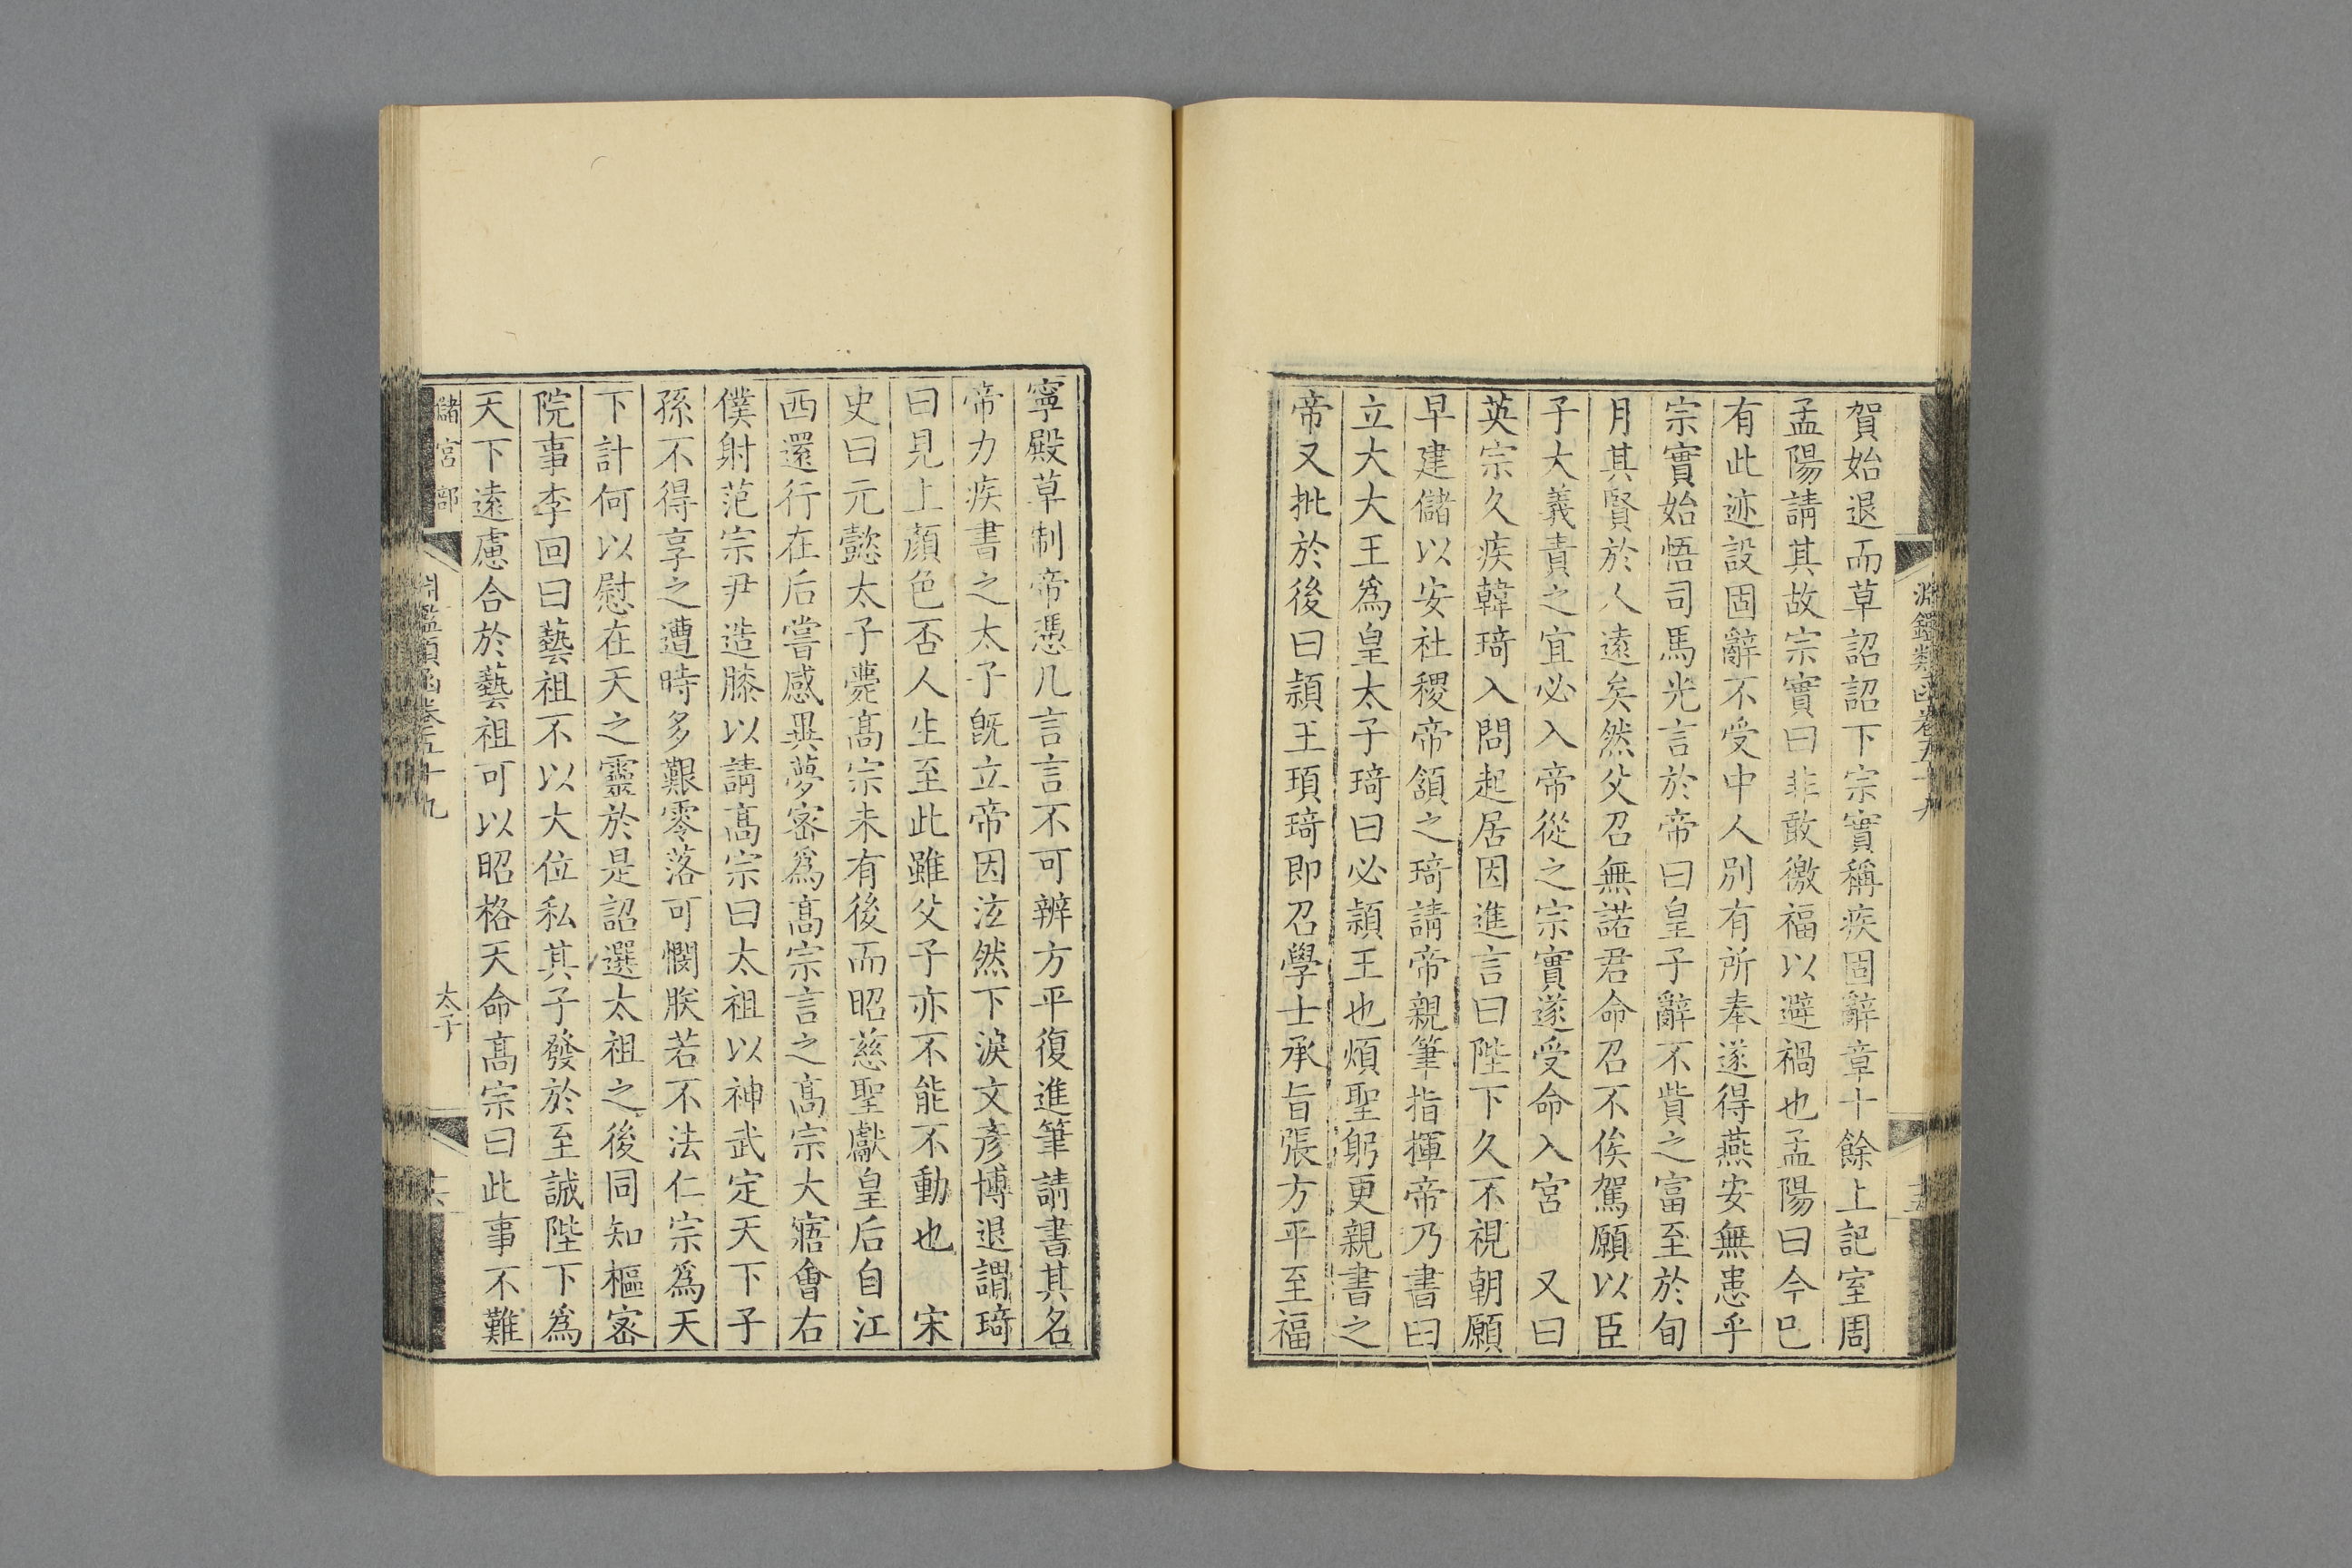 淵鑑類函卷五十九
賀始退而草詔詔下宗實稱疾固辭章十餘上記室周
孟陽請其故宗實曰非敢徼福以避禍也孟陽曰今已
有此迹設固辭不受中人別有所奉遂得燕安無患乎
宗實始悟司馬光言於帝曰皇子辭不貲之富至於旬
月其賢於人遠矣然父召無諾君命召不俟駕願以臣
子大義責之宜必入帝從之宗實遂受命入宮　又曰
英宗久疾韓琦入問起居因進言曰陛下久不視朝願
早建儲以安社稷帝頷之琦請帝親筆指揮帝乃書曰
立大大王為皇太子琦曰必潁王也煩聖躬更親書之
帝又批於後曰潁王頊琦即召學士承旨張方平至福
寧殿草制帝憑几言言不可辨方平復進筆請書其名
帝力疾書之太子既立帝因泫然下淚文彥博退謂琦
曰見上顏色否人生至此雖父子亦不能不動也　宋
史曰元懿太子薨高宗未有後而昭慈聖獻皇后自江
西還行在后嘗感異夢密為高宗言之高宗大寤會右
僕射范宗尹造膝以請高宗曰太祖以神武定天下子
孫不得享之遭時多艱零落可憫朕若不法仁宗為天
下計何以慰在天之靈於是詔選太祖之後同知樞密
院事李回曰藝祖不以大位私其子發於至誠陛下為
天下遠慮合於藝祖可以昭格天命高宗曰此事不難
儲宮部
淵鑑類函卷五十九
太子
十六